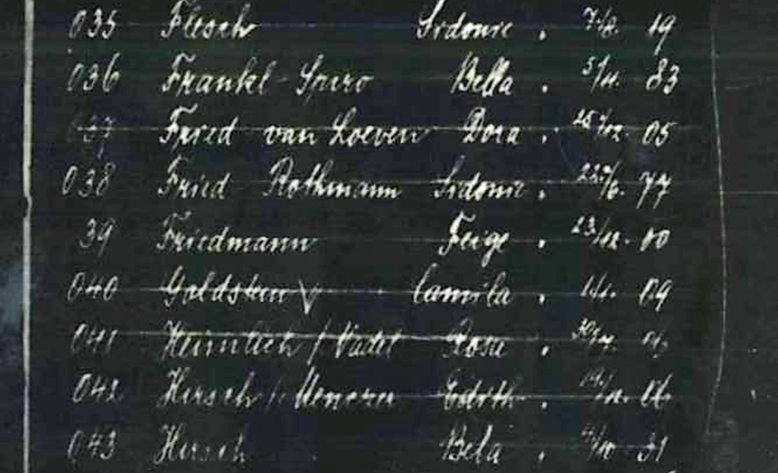 035 Flesch Sidonie . 7/8. 19
036 Frankl-Spiro Bella . 5/4. 83
037 Fried van Loeven Dora . /12. 05
038 Fried Rothmann Sidonie . 22/6. 77
39 Friedmann Feige . 23/12. 00
040 Goldstein Camila . 1/1. 09
041 Heimlich / Rosa .
042 Hirsch / Menczer Edith .
043 Hirsch Bela . /10 31